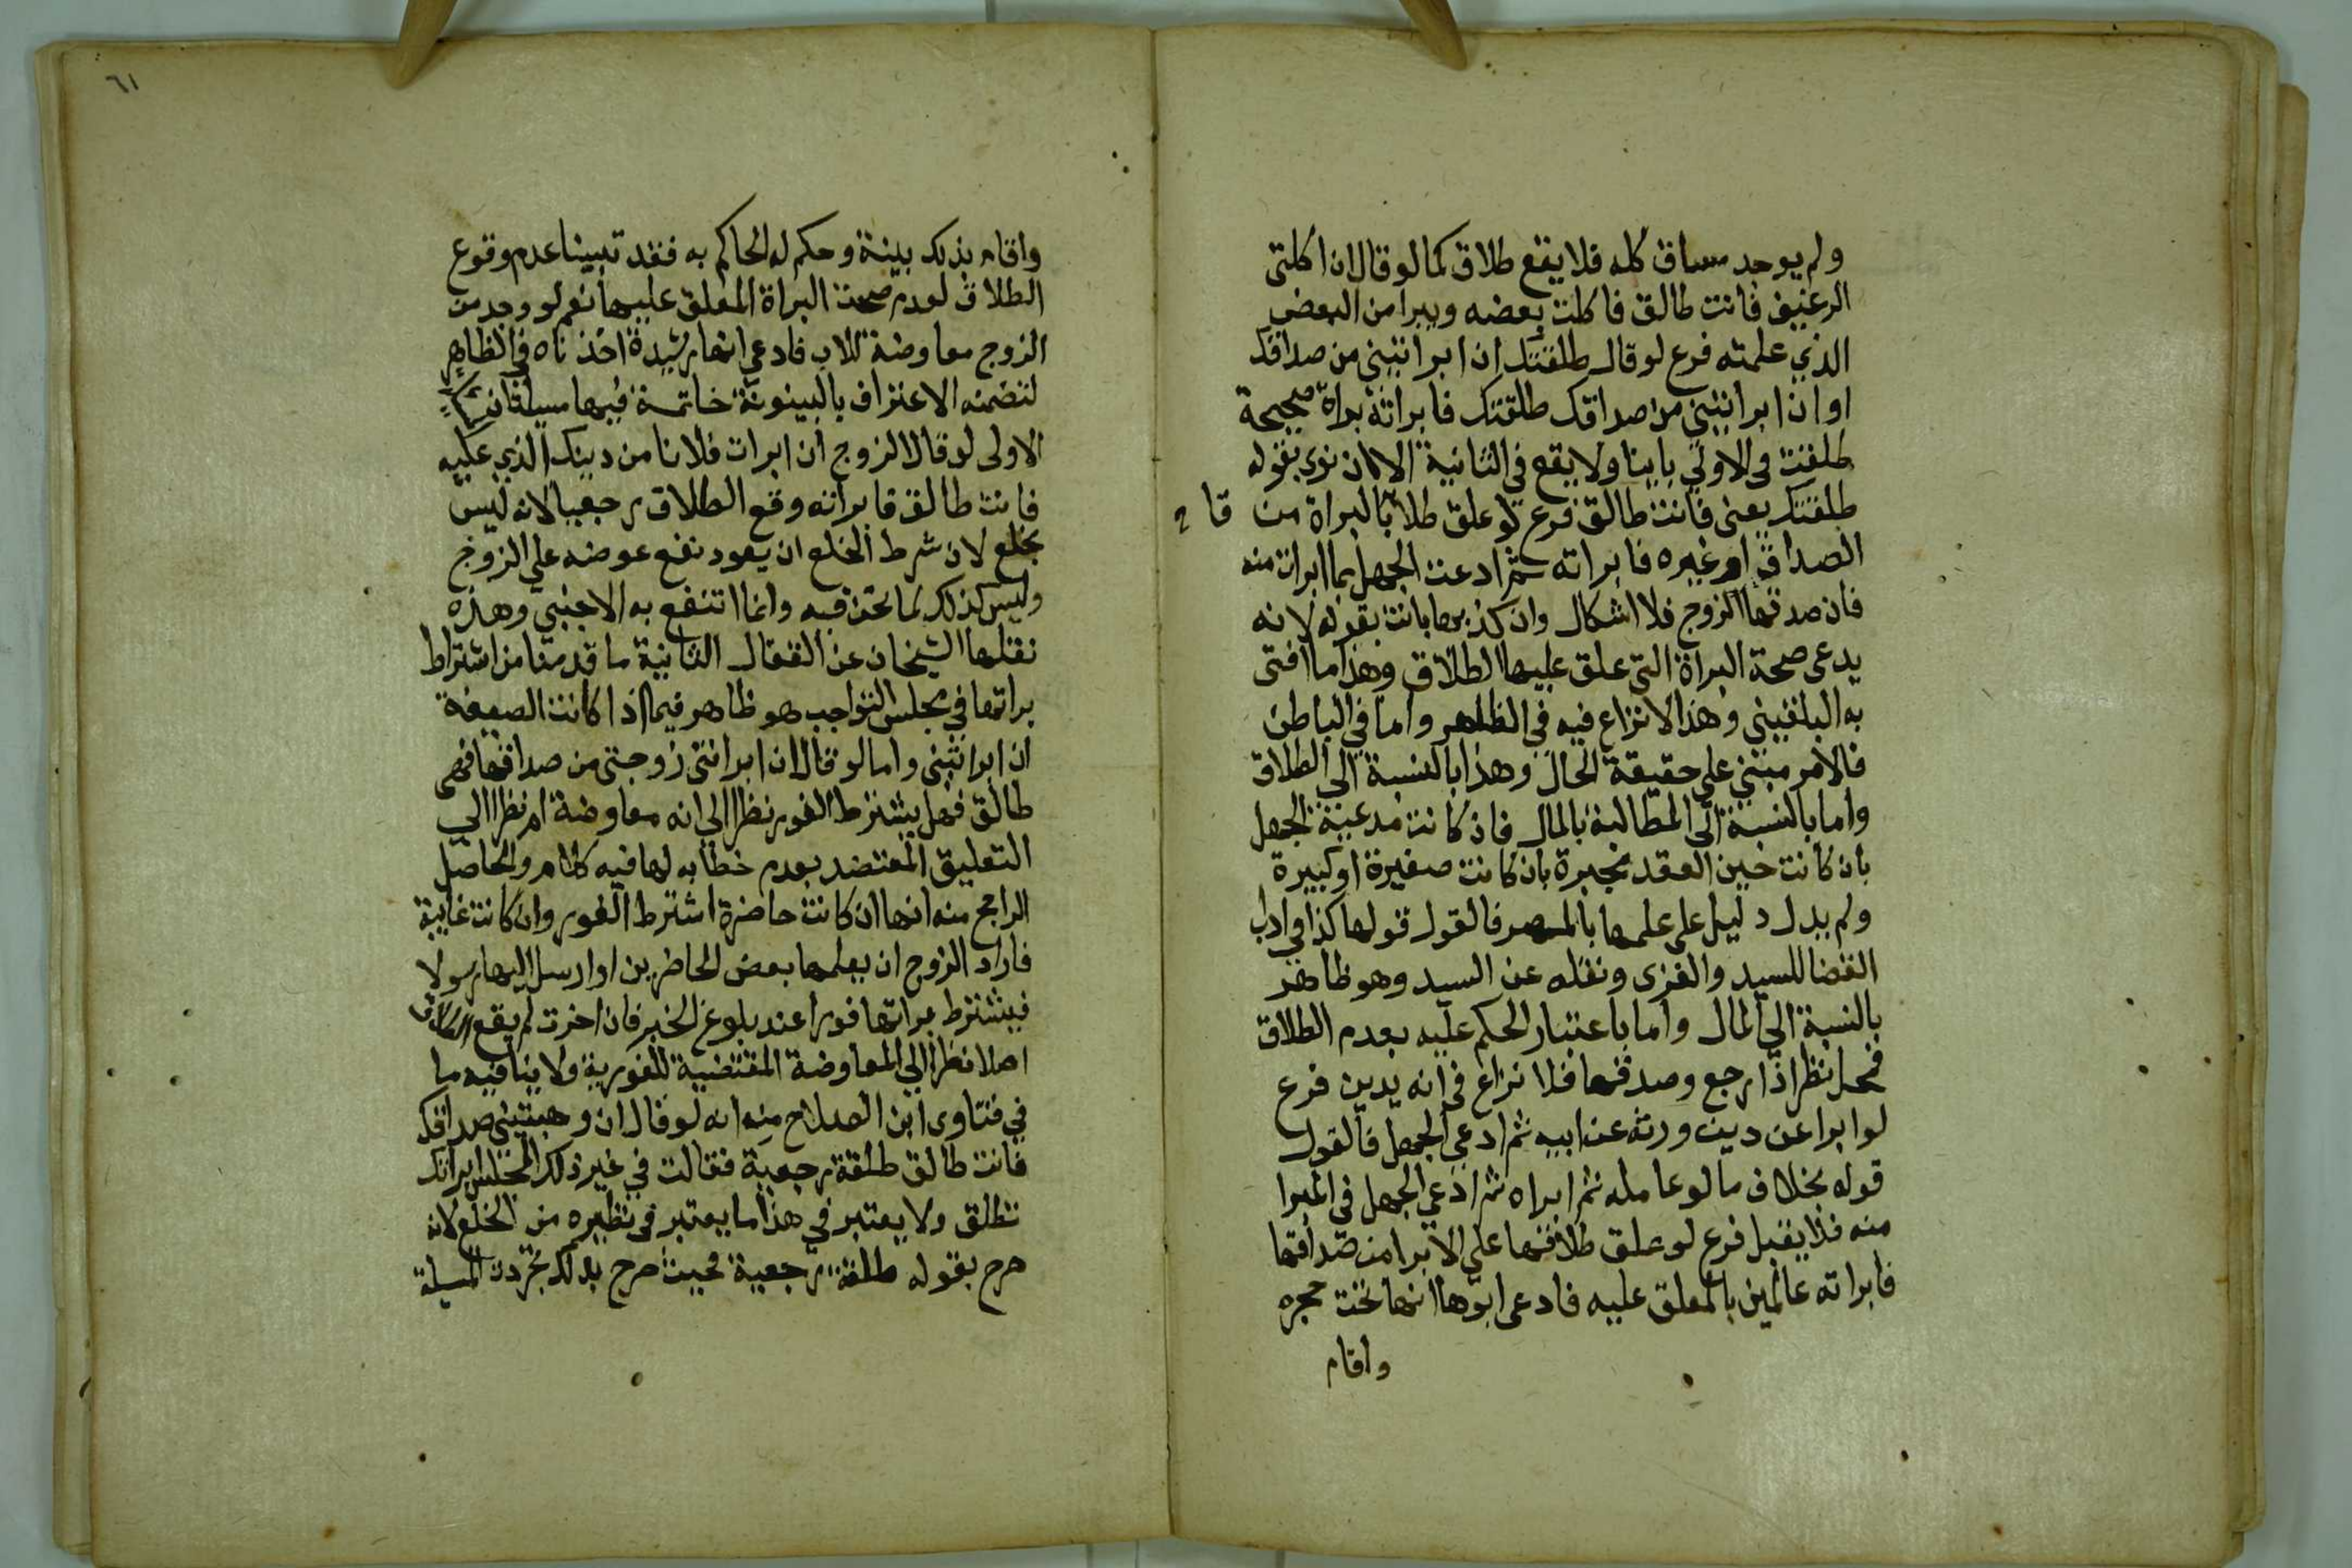 ولم يوجد مساق كله فلا يقع طلاق كما لو قال ان اكلتى
الرغيف فانت طالق فاكلت بعضه ويبرا من البعض
الذي علمته فرع لو قال طلقتك ان ابراتيني من صداقك
او ان ابراتيني من صداقك طلقتك فابراته براة صحيحة
طلقت في الاولي باينا ولا يقع في الثانية الا ان نوى بقوله
طلقتك يعنى فانت طالق فرع لو علق طلاقها بالبراة من
الصداق او غيره فابراته ثم ادعت الجهل بما ابرات منه
فان صدقها الزوج فلا اشكال وان كذبها بانت بقوله لانه
يدعى صحة البراة التي علق عليها الطلاق وهذا ما افتى
به البلقيني وهذا لا نزاع فيه في الظاهر واما في الباطن
فالامر مبنى على حقيقة الحال وهذا بالنسبة الى الطلاق
واما بالنسبة الى المطالبة بالمال فان كانت مدعية الجهل
بان كانت حين العقد مجبرة بان كانت صغيرة او كبيرة
ولم يدل دليل على علمها بالمهر فالقول قولها كذا في ادب
القضا للسيد والغزى ونقله عن السيد وهو ظاهر
بالنسبة الى المال واما باعتبار الحكم عليه بعدم الطلاق
فمحل نظر اذا رجع وصدقها فلا نزاع في انه يدين فرع
لو ابرا عن دين ورثه عن ابيه ثم ادعى الجهل فالقول
قوله بخلاف ما لو عامله ثم ابراه ثم ادعي الجهل في المبرا
منه فلا يقبل فرع لو علق طلاقها على الابرا من صداقها
فابراته عالمين بالمعلق عليه فادعى ابوها انها تحت حجره
واقام
٦١
واقام بذلك بينة وحكم له الحاكم به فقد تبينا عدم وقوع
الطلاق لعدم صحت البراة المعلق عليها نعم لو وجد من
الزوج معاوضة للاب فادعي انها رشيدة اخذناه في الظاهر
لتضمنه الاعتراف بالبينونة خاتمة فيها مسيلتان
الاولى لو قال الزوج ان ابرات فلانا من دينك الذي عليه
فانت طالق فابراته وقع الطلاق رجعيا لانه ليس
بخلع لان شرط الخلع ان يعود نفع عوضه علي الزوج
وليس كذلك بما نحن فيه وانما انتفع به الاجنبي وهذه
نقلها الشيخان عن القفال الثانية ما قدمنا من اشتراط
براتها في مجلس التواجب هو ظاهر فيما اذا كانت الصيغة
ان ابراتيني واما لو قال ان ابراتنى زوجتى من صداقها فهى
طالق فهل يشترط الفور نظرا الي انه معاوضة ام نظرا الي
التعليق المعتضد بعدم خطابه لها فيه كلام والحاصل
الراجح منه انها ان كانت حاضرة اشترط الفور وان كانت غايبة
فاراد الزوج ان يعلمها بعض الحاضرين او ارسل اليها رسولا
فيشترط براتها فورا عند بلوغ الخبر فان اخرت لم يقع الطلاق
اصلا نظرا الي المعاوضة المقتضية للفورية ولا ينافيه ما
في فتاوى ابن الصلاح منه انه لو قال ان وهبتيني صداقك
فانت طالق طلقة رجعية فقالت في غير ذلك المجلس ابراتك
تطلق ولا يعتبر في هذا ما يعتبر في نظيره من الخلع لانه
صرح بقوله طلقة رجعية فحيث صرح بذلك تجردت المسيلة